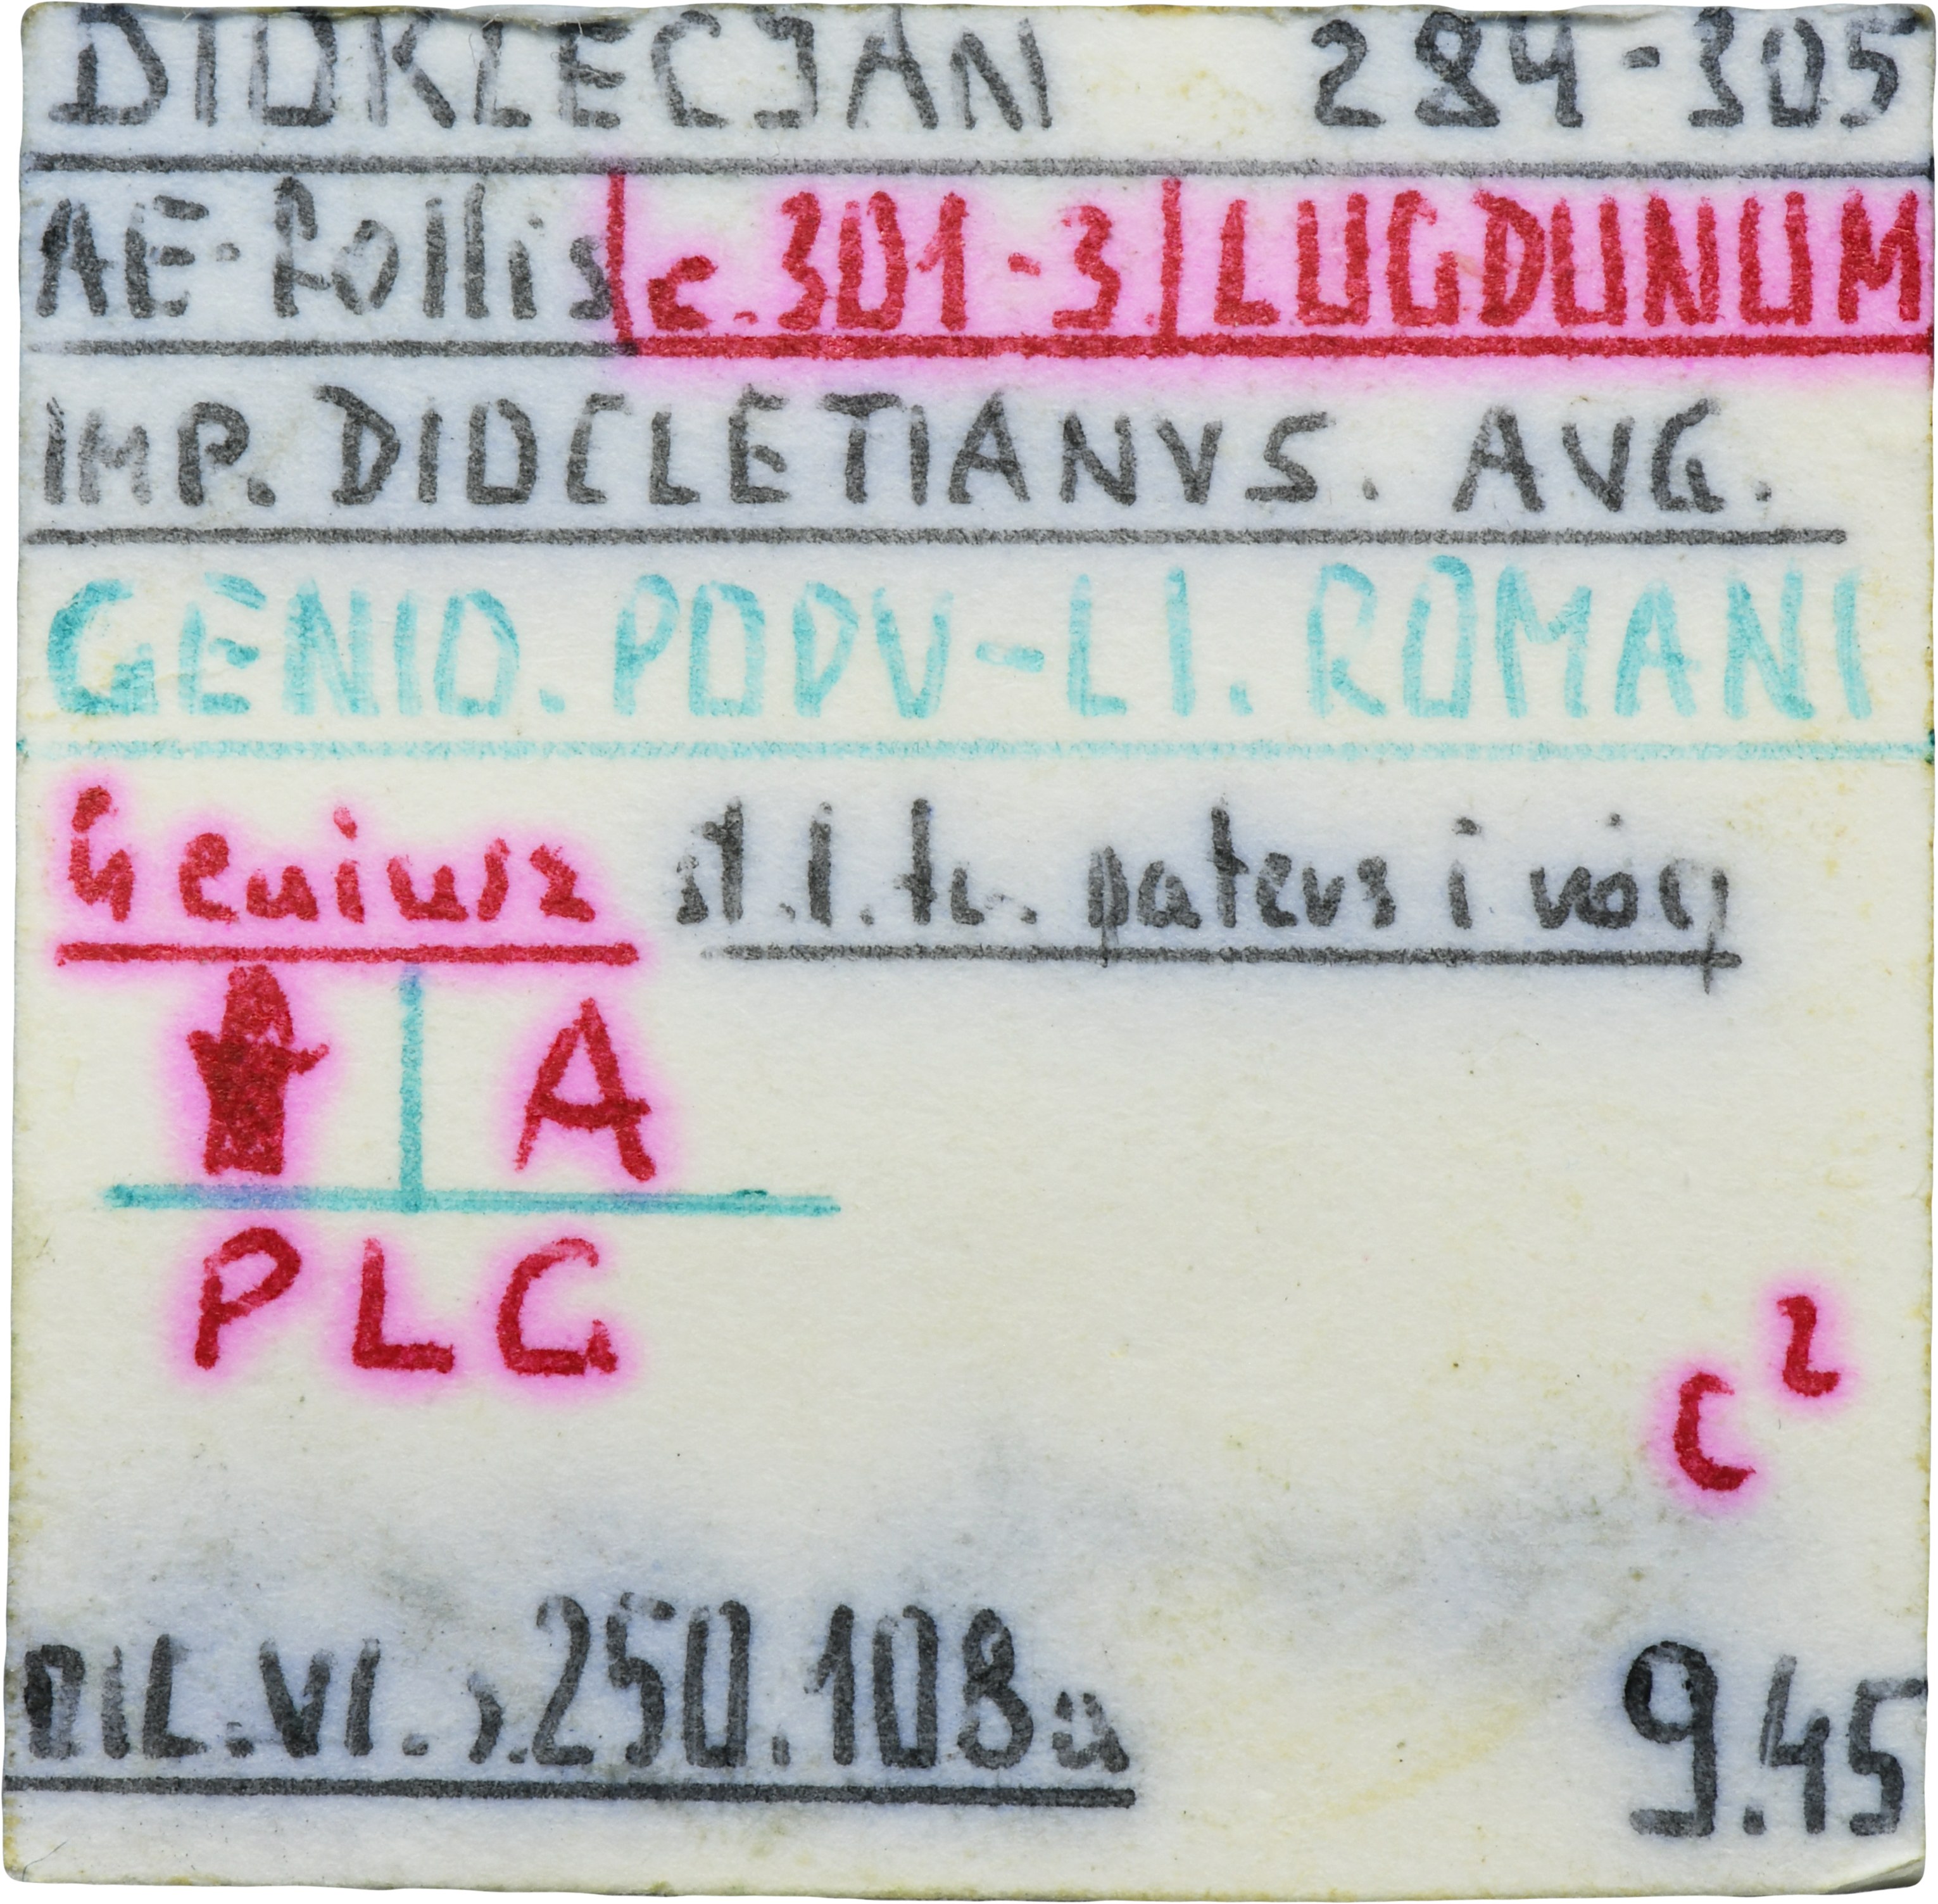 DIOKLECJAN 284-305
AE-follis c.301-3 LUGDUNUM
IMP. DIOCLETIANVS. AVG.
GENIO. POPV-LI. ROMANI
Geniusz st.l. tr. paterę i róg
A
PLG
C²
RIC.VI. s.250.108a
9.45